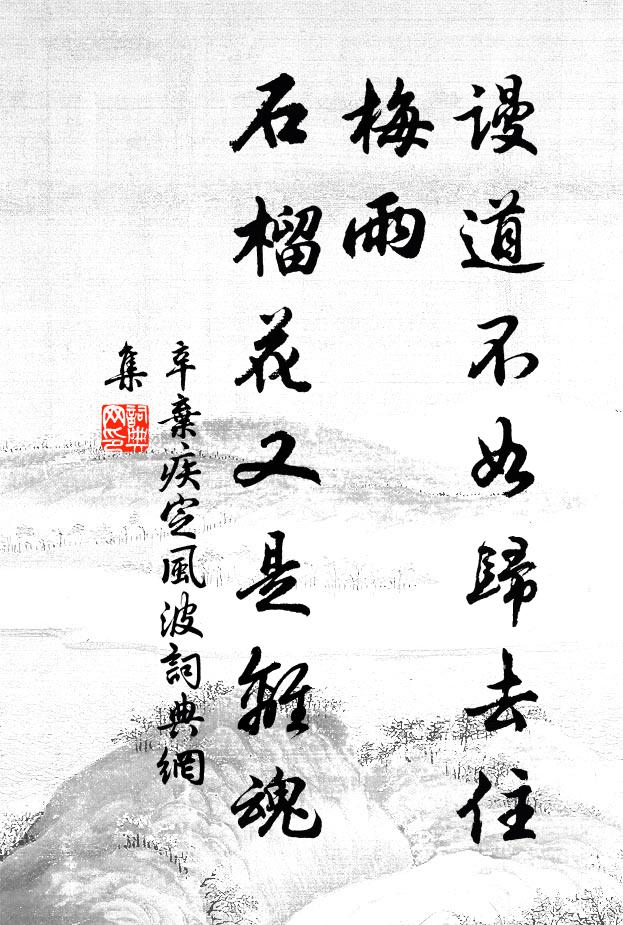 谩道不如歸去住
梅雨
石榴花又是離魂
辛棄疾定風波詞典網
集
詞典
网印